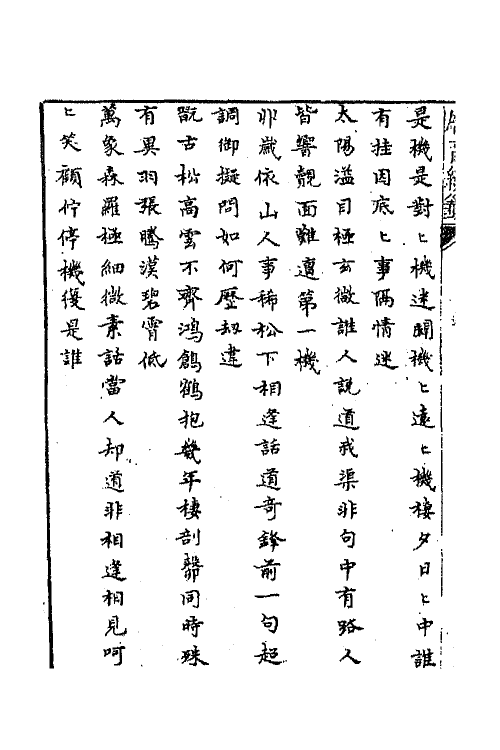 是機是對ヒ機迷闢機ヒ遠ヒ機棲夕日ヒ中誰
有挂因底ヒ事隔情迷
太陽溢目極玄微誰人說道我渠非句中有路人
皆響覿面難遭第一機
丱歲依山人事稀松下相逢話道奇鋒前一句超
調御擬問如何歷劫違
翫古松高雲不齊鴻鶬鶴抱幾年棲剖同時殊
有異羽張騰漢碧霄低
萬象森羅極細微素話當人却道非相逢相見呵
ヒ笑顧佇停機復是誰